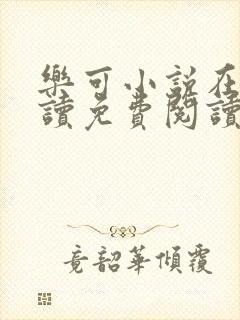 樂可小說在
讀免費閱讀
竟韶華傾覆